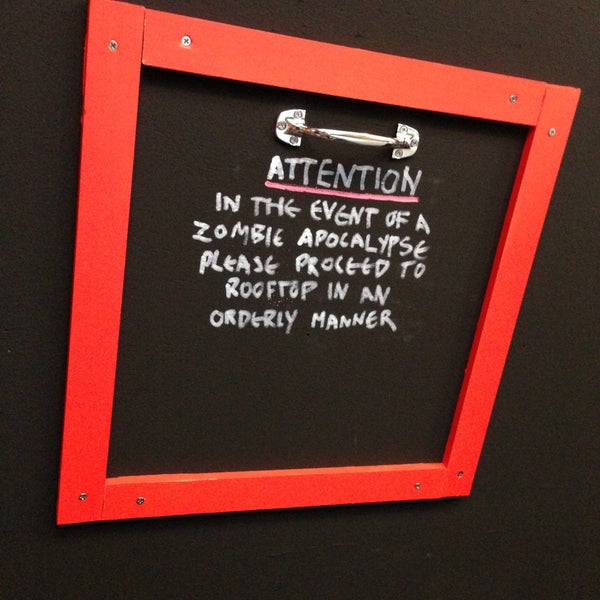 ATTENTION
IN THE EVENT OF A
ZOMBIE APOCALYPSE
PLEASE PROCEED TO
ROOFTOP IN AN
ORDERLY MANNER